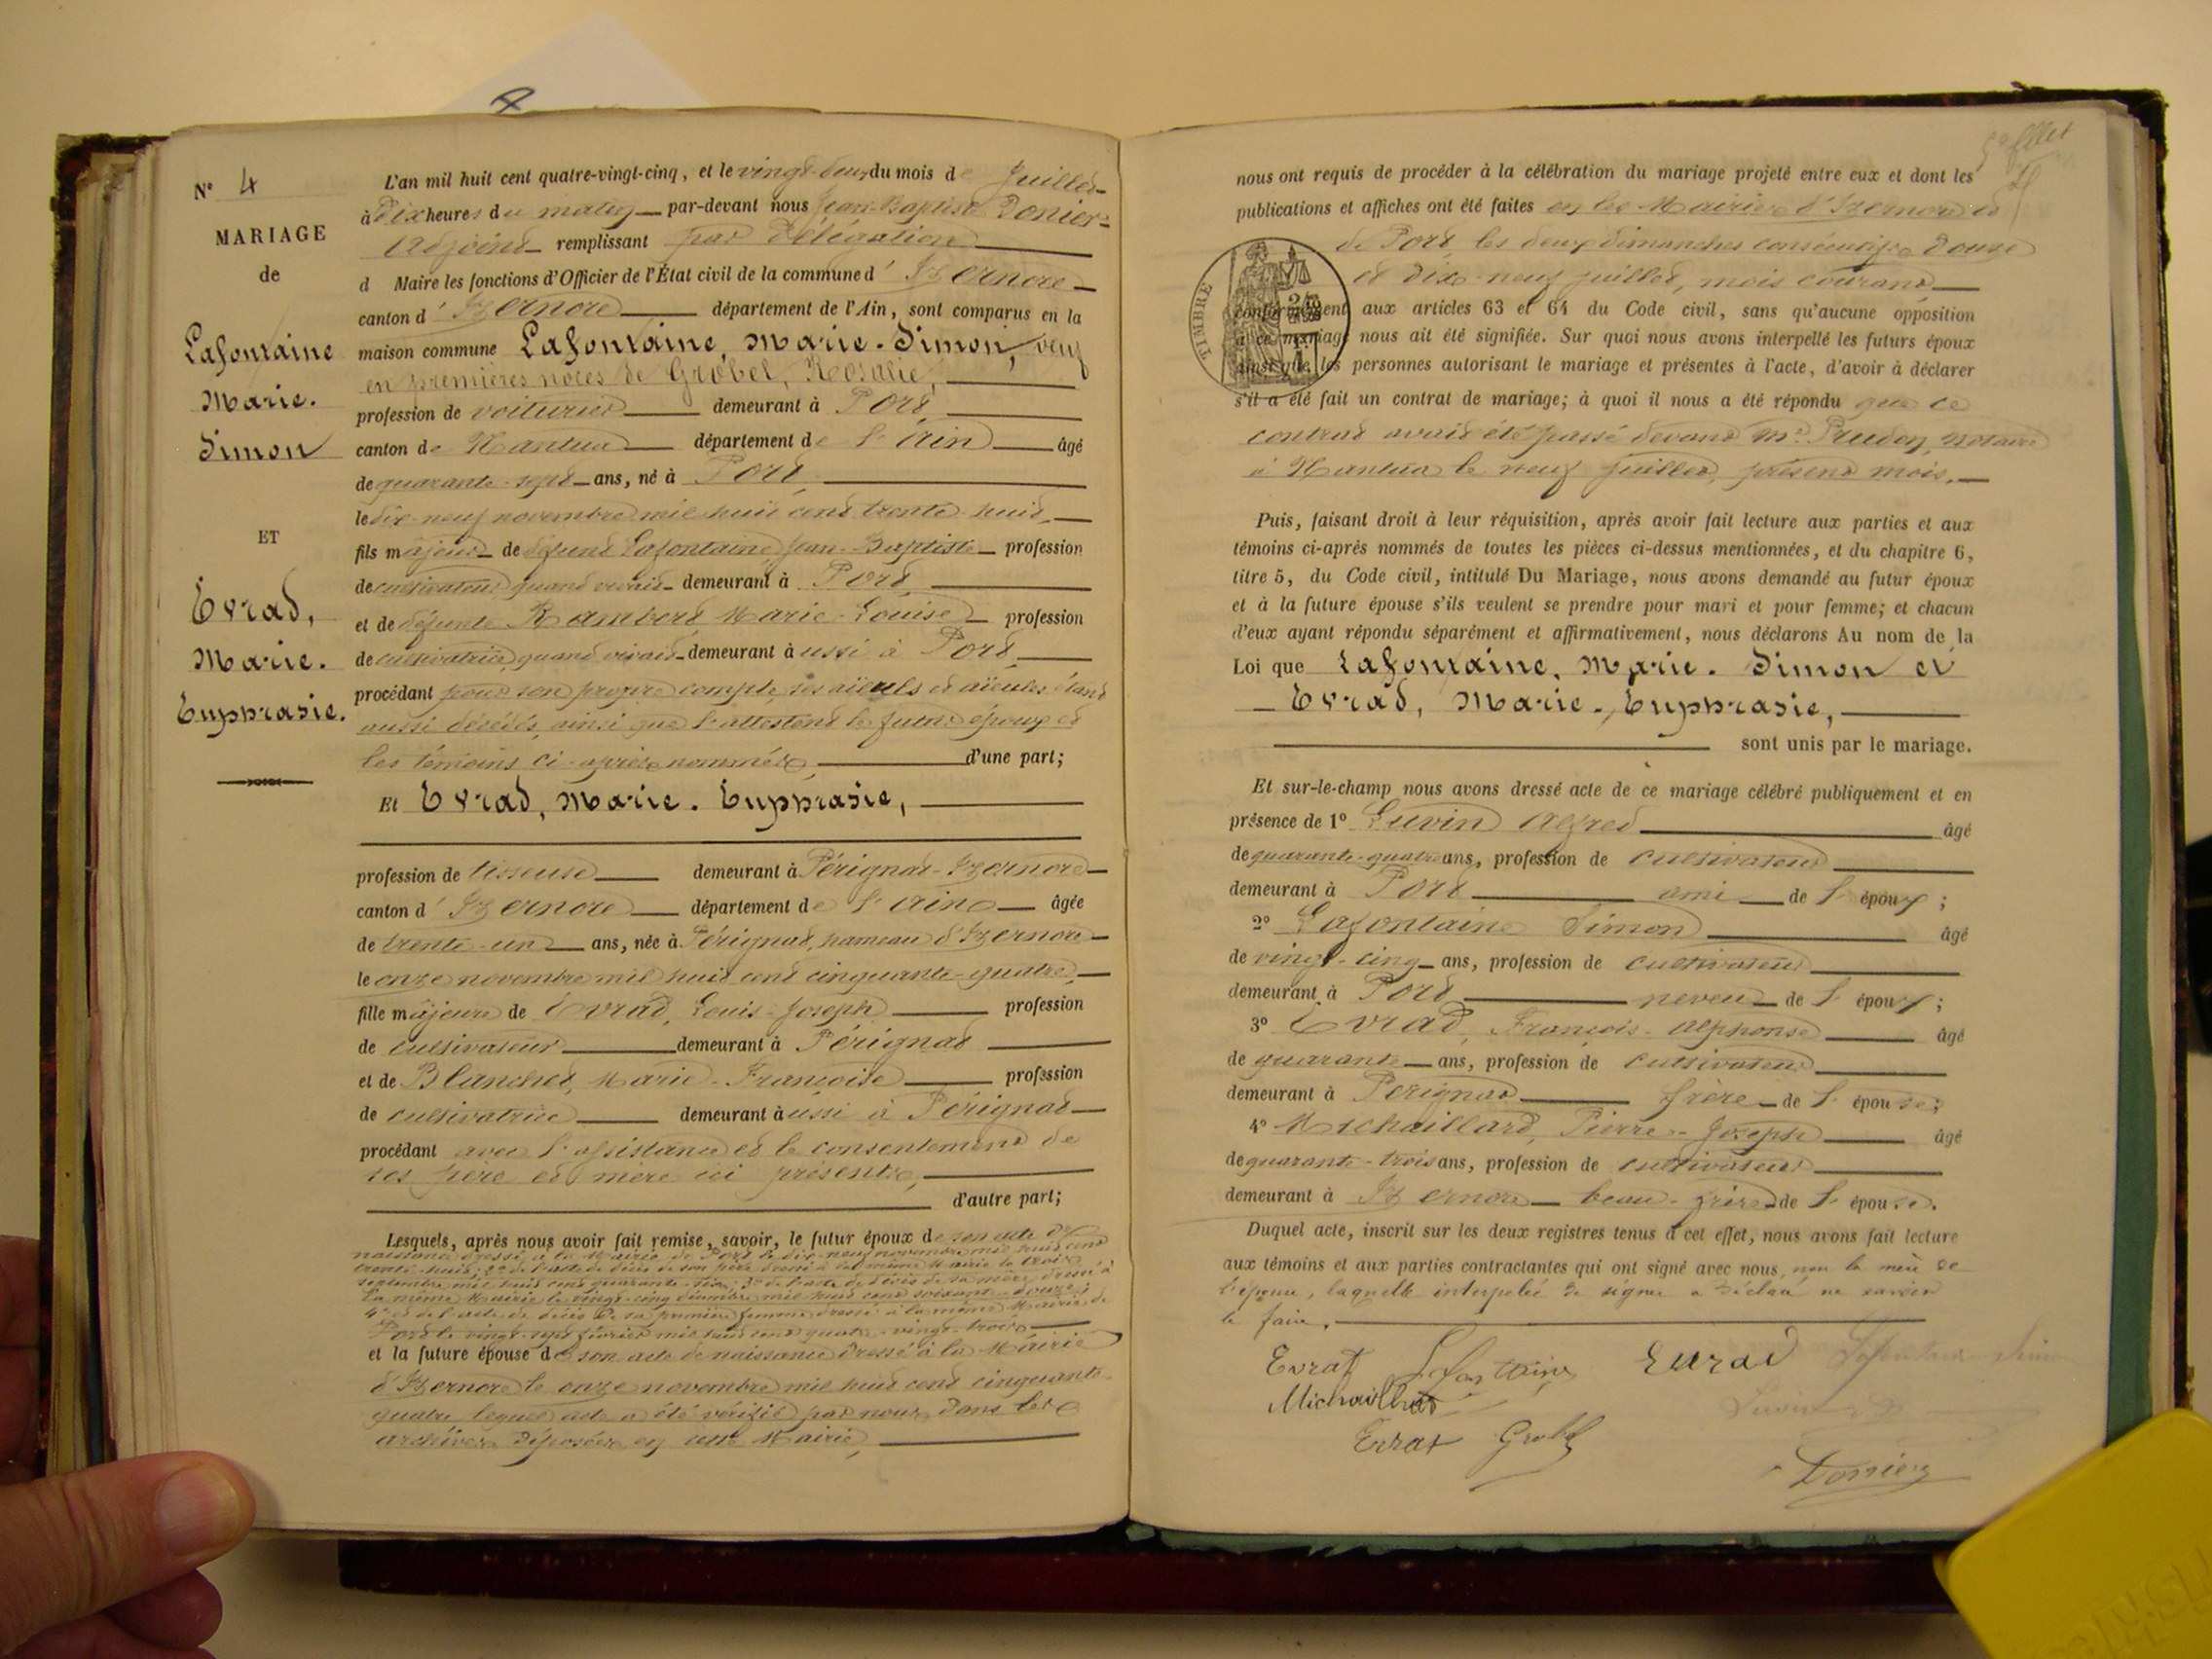 N° 4
MARIAGE
de
Lafontaine
Marie.
Simon
ET
Evrad,
Marie.
Euphrasie.
L'an mil huit cent quatre-vingt-cinq, et le vingt-deux du mois de Juillet
à Dix heures du matin par-devant nous Jean-Baptiste Donier
Adjoint remplissant par Délégation
d Maire les fonctions d'Officier de l'État civil de la commune d'Izernore
canton d'Izernore département de l'Ain, sont comparus en la
maison commune Lafontaine, Marie-Simon, veuf
en premières noces de Grobel, Rosalie,
profession de voiturier demeurant à Port
canton de Nantua département de l'Ain âgé
de quarante-sept ans, né à Port,
le dix-neuf novembre mil huit cent trente-huit,
fils majeur de défunt Lafontaine Jean-Baptiste profession
de cultivateur quand vivait demeurant à Port
et de défunte Rambert Marie-Louise profession
de cultivatrice, quand vivait demeurant aussi à Port,
procédant pour son propre compte, ses aïeuls et aïeules étant
aussi décédés, ainsi que l'attestent le futur époux et
les témoins ci-après nommés, d'une part;
Et Evrad, Marie-Euphrasie,
profession de tisseuse demeurant à Pérignat-Izernore
canton d'Izernore département de l'Ain âgée
de trente-un ans, née à Pérignat, hameau d'Izernore
le onze novembre mil huit cent cinquante-quatre,
fille majeure de Evrad, Louis-Joseph profession
de cultivateur demeurant à Pérignat
et de Blanchet, Marie-Françoise profession
de cultivatrice demeurant aussi à Pérignat
procédant avec l'assistance et le consentement de
ses père et mère ici présents,
d'autre part;
Lesquels, après nous avoir fait remise, savoir, le futur époux de son acte de
naissance dressé à la Mairie de Port le dix-neuf novembre mil huit cent
trente-huit; 2° de l'acte de décès de son père dressé à la même Mairie le trois
septembre mil huit cent quarante-six; 3° de l'acte de décès de sa mère dressé à
la même Mairie le vingt-cinq décembre mil huit cent soixante-douze;
4° et de l'acte de décès de sa première femme dressé à la même Mairie de
Port le vingt-sept février mil huit cent quatre-vingt-trois
et la future épouse de son acte de naissance dressé à la Mairie
d'Izernore le onze novembre mil huit cent cinquante-
quatre, lequel acte a été vérifié par nous dans les
archives déposées en cette Mairie,
nous ont requis de procéder à la célébration du mariage projeté entre eux et dont les
publications et affiches ont été faites en les Mairies d'Izernore et
de Port les deux dimanches consécutifs douze
et dix-neuf juillet, mois courant
TIMBRE
conformément aux articles 63 et 64 du Code civil, sans qu'aucune opposition
à ce mariage nous ait été signifiée. Sur quoi nous avons interpellé les futurs époux
ainsi que les personnes autorisant le mariage et présentes à l'acte, d'avoir à déclarer
s'il a été fait un contrat de mariage; à quoi il nous a été répondu que ce
contrat avait été passé devant Me Prudon, notaire
à Nantua le neuf juillet, présent mois.
Puis, faisant droit à leur réquisition, après avoir fait lecture aux parties et aux
témoins ci-après nommés de toutes les pièces ci-dessus mentionnées, et du chapitre 6,
titre 5, du Code civil, intitulé Du Mariage, nous avons demandé au futur époux
et à la future épouse s'ils veulent se prendre pour mari et pour femme; et chacun
d'eux ayant répondu séparément et affirmativement, nous déclarons Au nom de la
Loi que Lafontaine, Marie-Simon et
Evrad, Marie-Euphrasie,
sont unis par le mariage.
Et sur-le-champ nous avons dressé acte de ce mariage célébré publiquement et en
présence de 1° Luvin Alfred âgé
de quarante-quatre ans, profession de cultivateur
demeurant à Port ami de l'époux;
2° Lafontaine Simon âgé
de vingt-cinq ans, profession de cultivateur
demeurant à Port neveu de l'époux;
3° Evrad, François-Alphonse âgé
de quarante ans, profession de cultivateur
demeurant à Pérignat frère de l'épouse;
4° Michaillard, Pierre-Joseph âgé
de quarante-trois ans, profession de cultivateur
demeurant à Izernore beau-frère de l'épouse.
Duquel acte, inscrit sur les deux registres tenus à cet effet, nous avons fait lecture
aux témoins et aux parties contractantes qui ont signé avec nous, non la mère de
l'épouse, laquelle interpelée de signer a déclaré ne savoir
le faire.
Evrat Lafontaine Eurad Lafontaine Simon
Michaillard
Evrat Grobel
Donier